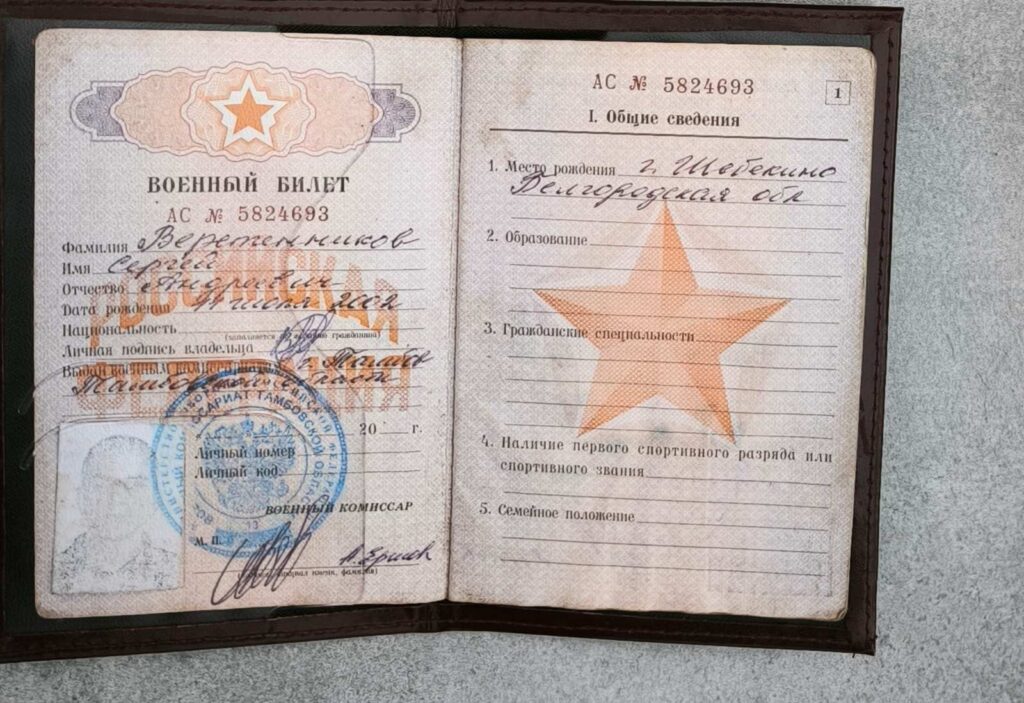 ВОЕННЫЙ БИЛЕТ
АС № 5824693
Фамилия Веретенников
Имя Сергей
Отчество Андреевич
Дата рождения 2002
Национальность
(заполняется по желанию гражданина)
Личная подпись владельца
Выдан военным комиссариатом г. Тамбов
Тамбовской области
РОССИЙСКАЯ
ФЕДЕРАЦИЯ
20 г.
Личный номер
Личный код
ВОЕННЫЙ КОМИССАР
М. П.
ТАМБОВСКОЙ
АС № 5824693
1
I. Общие сведения
1. Место рождения г. Шебекино
Белгородская обл
2. Образование
3. Гражданские специальности
4. Наличие первого спортивного разряда или
спортивного звания
5. Семейное положение